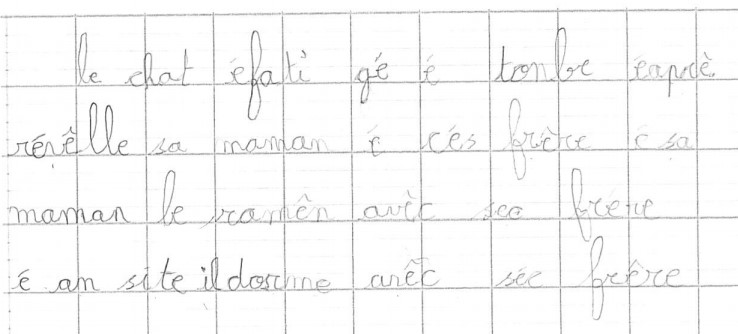 le chat éfati gé é tonbe éaprè
révêlle sa maman é cés frère é sa
maman le ramên avèc seo frère
é an site il dorme avêc sée frère